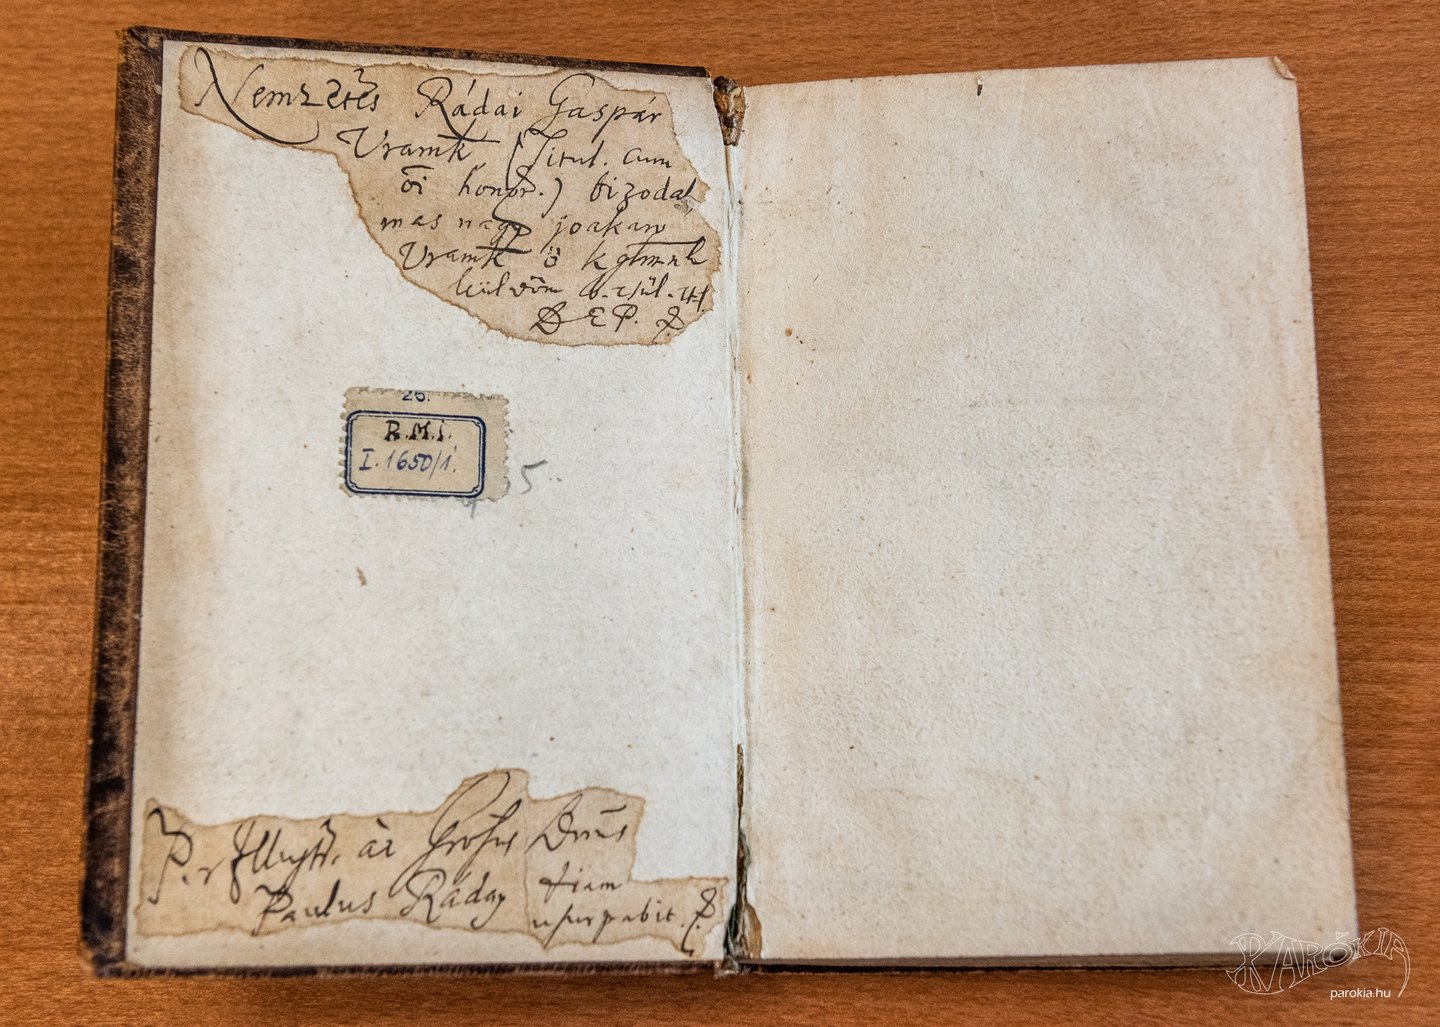 Nemzetes Rádai Gaspár
Uramk (Titul. cum
ōi honor.) bizodal
mas nagy joakaro
Uramk ő kglmnk
küldöm
D E P.
26.
R.M.i.
I.1650/1.
5.
P.r Illustr. ac Grōsus Dnus
Paulus Ráday
usurpabit.
PARÓKIA
parokia.hu